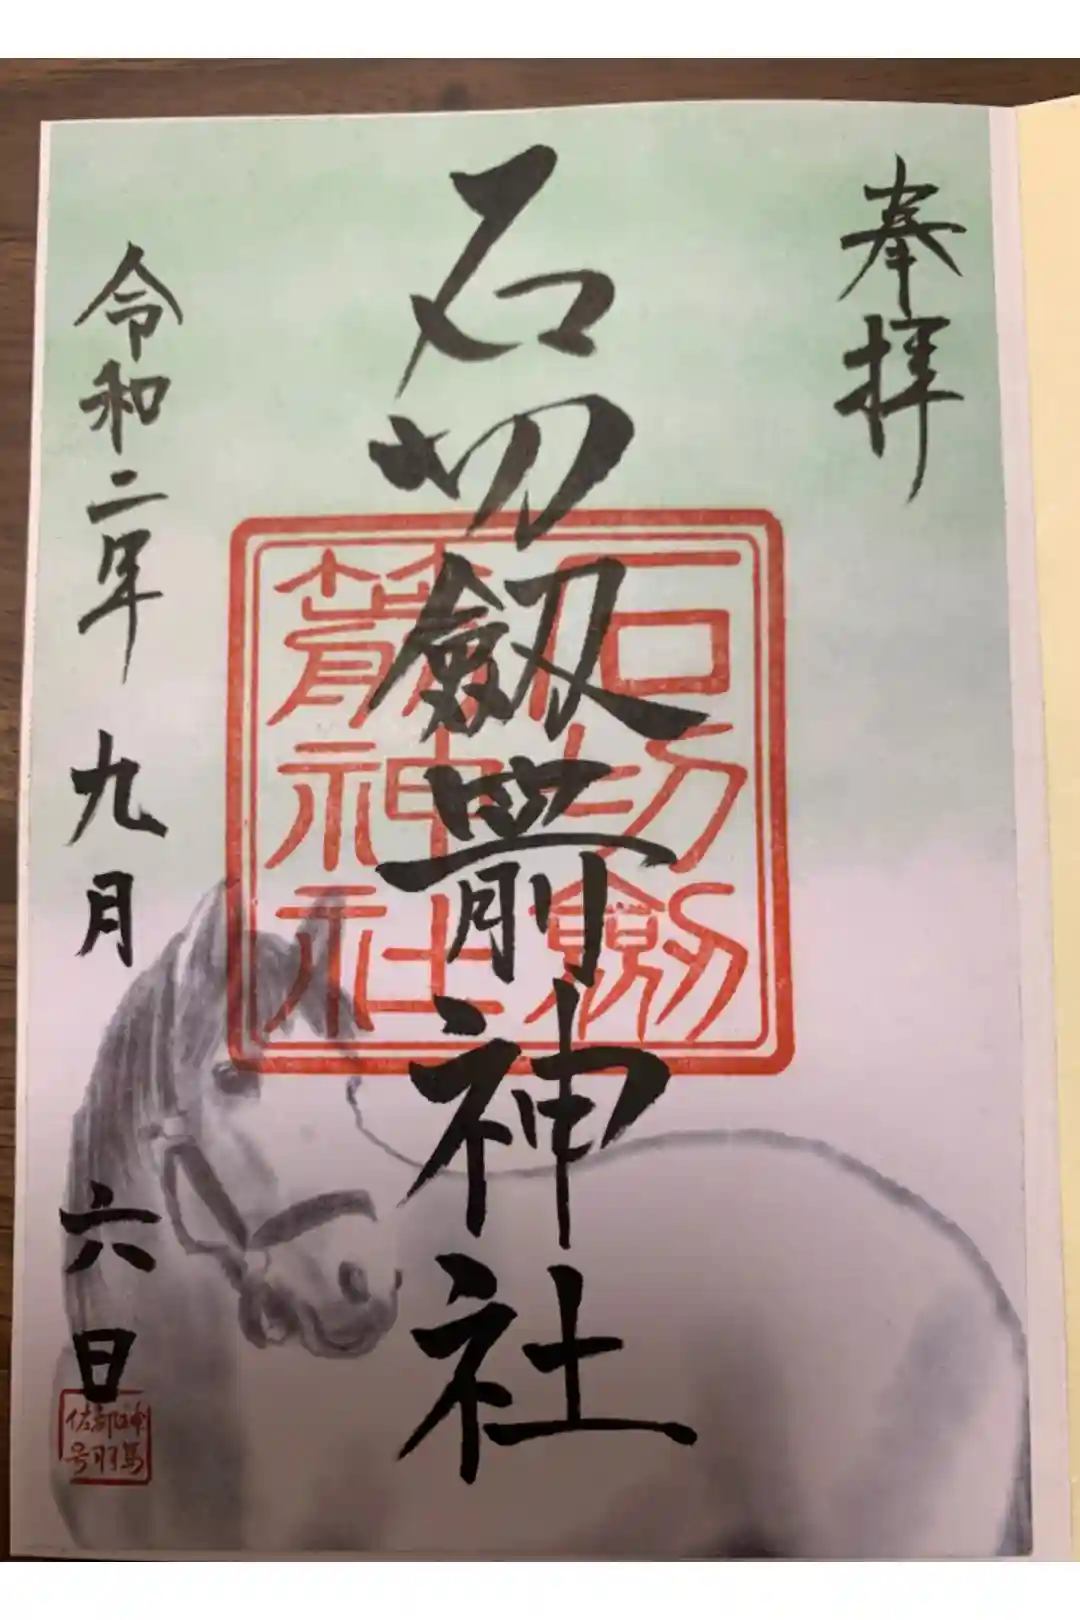 奉拝
石切劔箭神社
石切劔
箭神社
令和二年 九月 六日
神馬
都羽
佐号